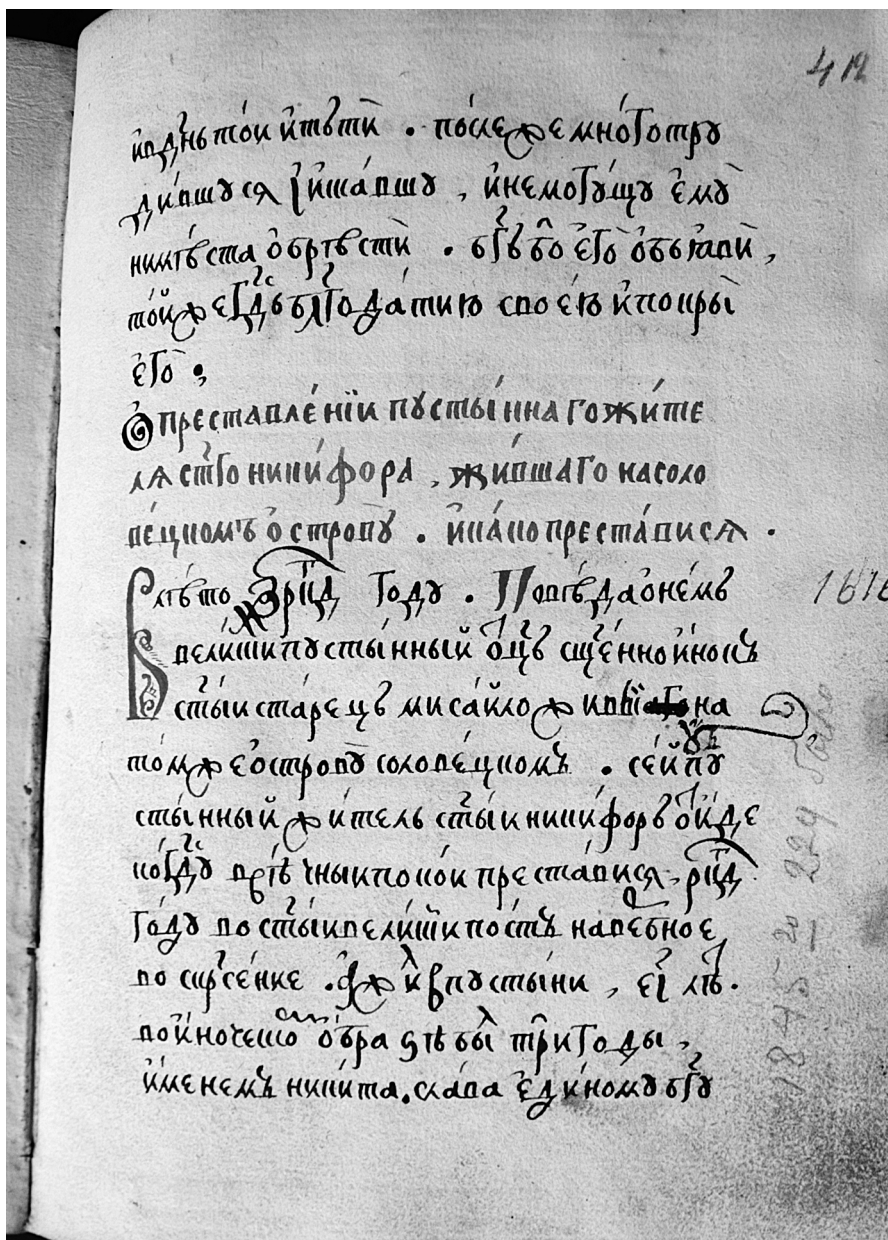 412
и҆ в̾ дн҃ь то́и и҆тѣтѝ . по́слеже мно́го трꙋ
ди́вшꙋся и҆ и҆ска́вшꙋ , и҆ не могꙋ́щꙋ є҆мꙋ̀
ни мѣ́ста ѻ҆брѣстѝ . бг҃ꙋ бо є҆го̀ ѻ҆б̾ѧвѝ ,
то́й же гдⷭ҇ь блг҃ода́тию свое́ю и҆ покры̀
є҆го̀ .
Ѻ҆ преставле́нїи пꙋсты́ннаго жи́те
лѧ ст҃го ники́фора , жи́вшаго на соло
ве́цномъ о҆стровꙋ̀ . и҆ ка́ко преста́висѧ .
Влѣ́то ҂зрк҃д годꙋ . Повѣ́да о не́мъ
вели́кии пꙋсты́нный ѻ҆ц҃ъ сщ҃е́нноиноκъ
ст҃ы́и ста́рецъ миса́ило жи́вый на
то́мже о҆стровꙋ̀ солове́цкомъ . се́й пꙋ
сты́нный жи́тель ст҃ы́и ники́форъ ѿи́де
ко гдⷭ҇ꙋ в̾ вѣ́чный поко́и преста́вися , рк҃д
го́дꙋ во ст҃ы́и вели́кии по́стъ на вербное
воскрⷭ҇е́ние . жи́л в̾ пꙋсты́ни , є҃і лѣ́т .
во и҆но́ческо ѻ҆́бразѣ бы̀л три го́ды ,
и҆́менемъ ники́та . сла́ва є҆ди́номꙋ бг҃ꙋ
1616
1845 - 20 224